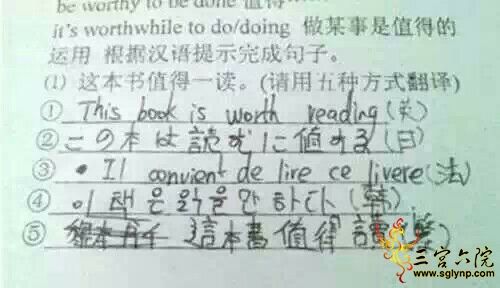 be worthy to be done 值得
it's worthwhile to do/doing 做某事是值得的
运用 根据汉语提示完成句子。
(1) 这本书值得一读。(请用五种方式翻译)
① This book is worth reading (关)
② この本は読むに値する (日)
③ • Il convient de lire ce livere (法)
④ 이 책은 읽을 만 하다 (韩)
⑤ 這本書值得讀
三宫六院
www.sglynp.com